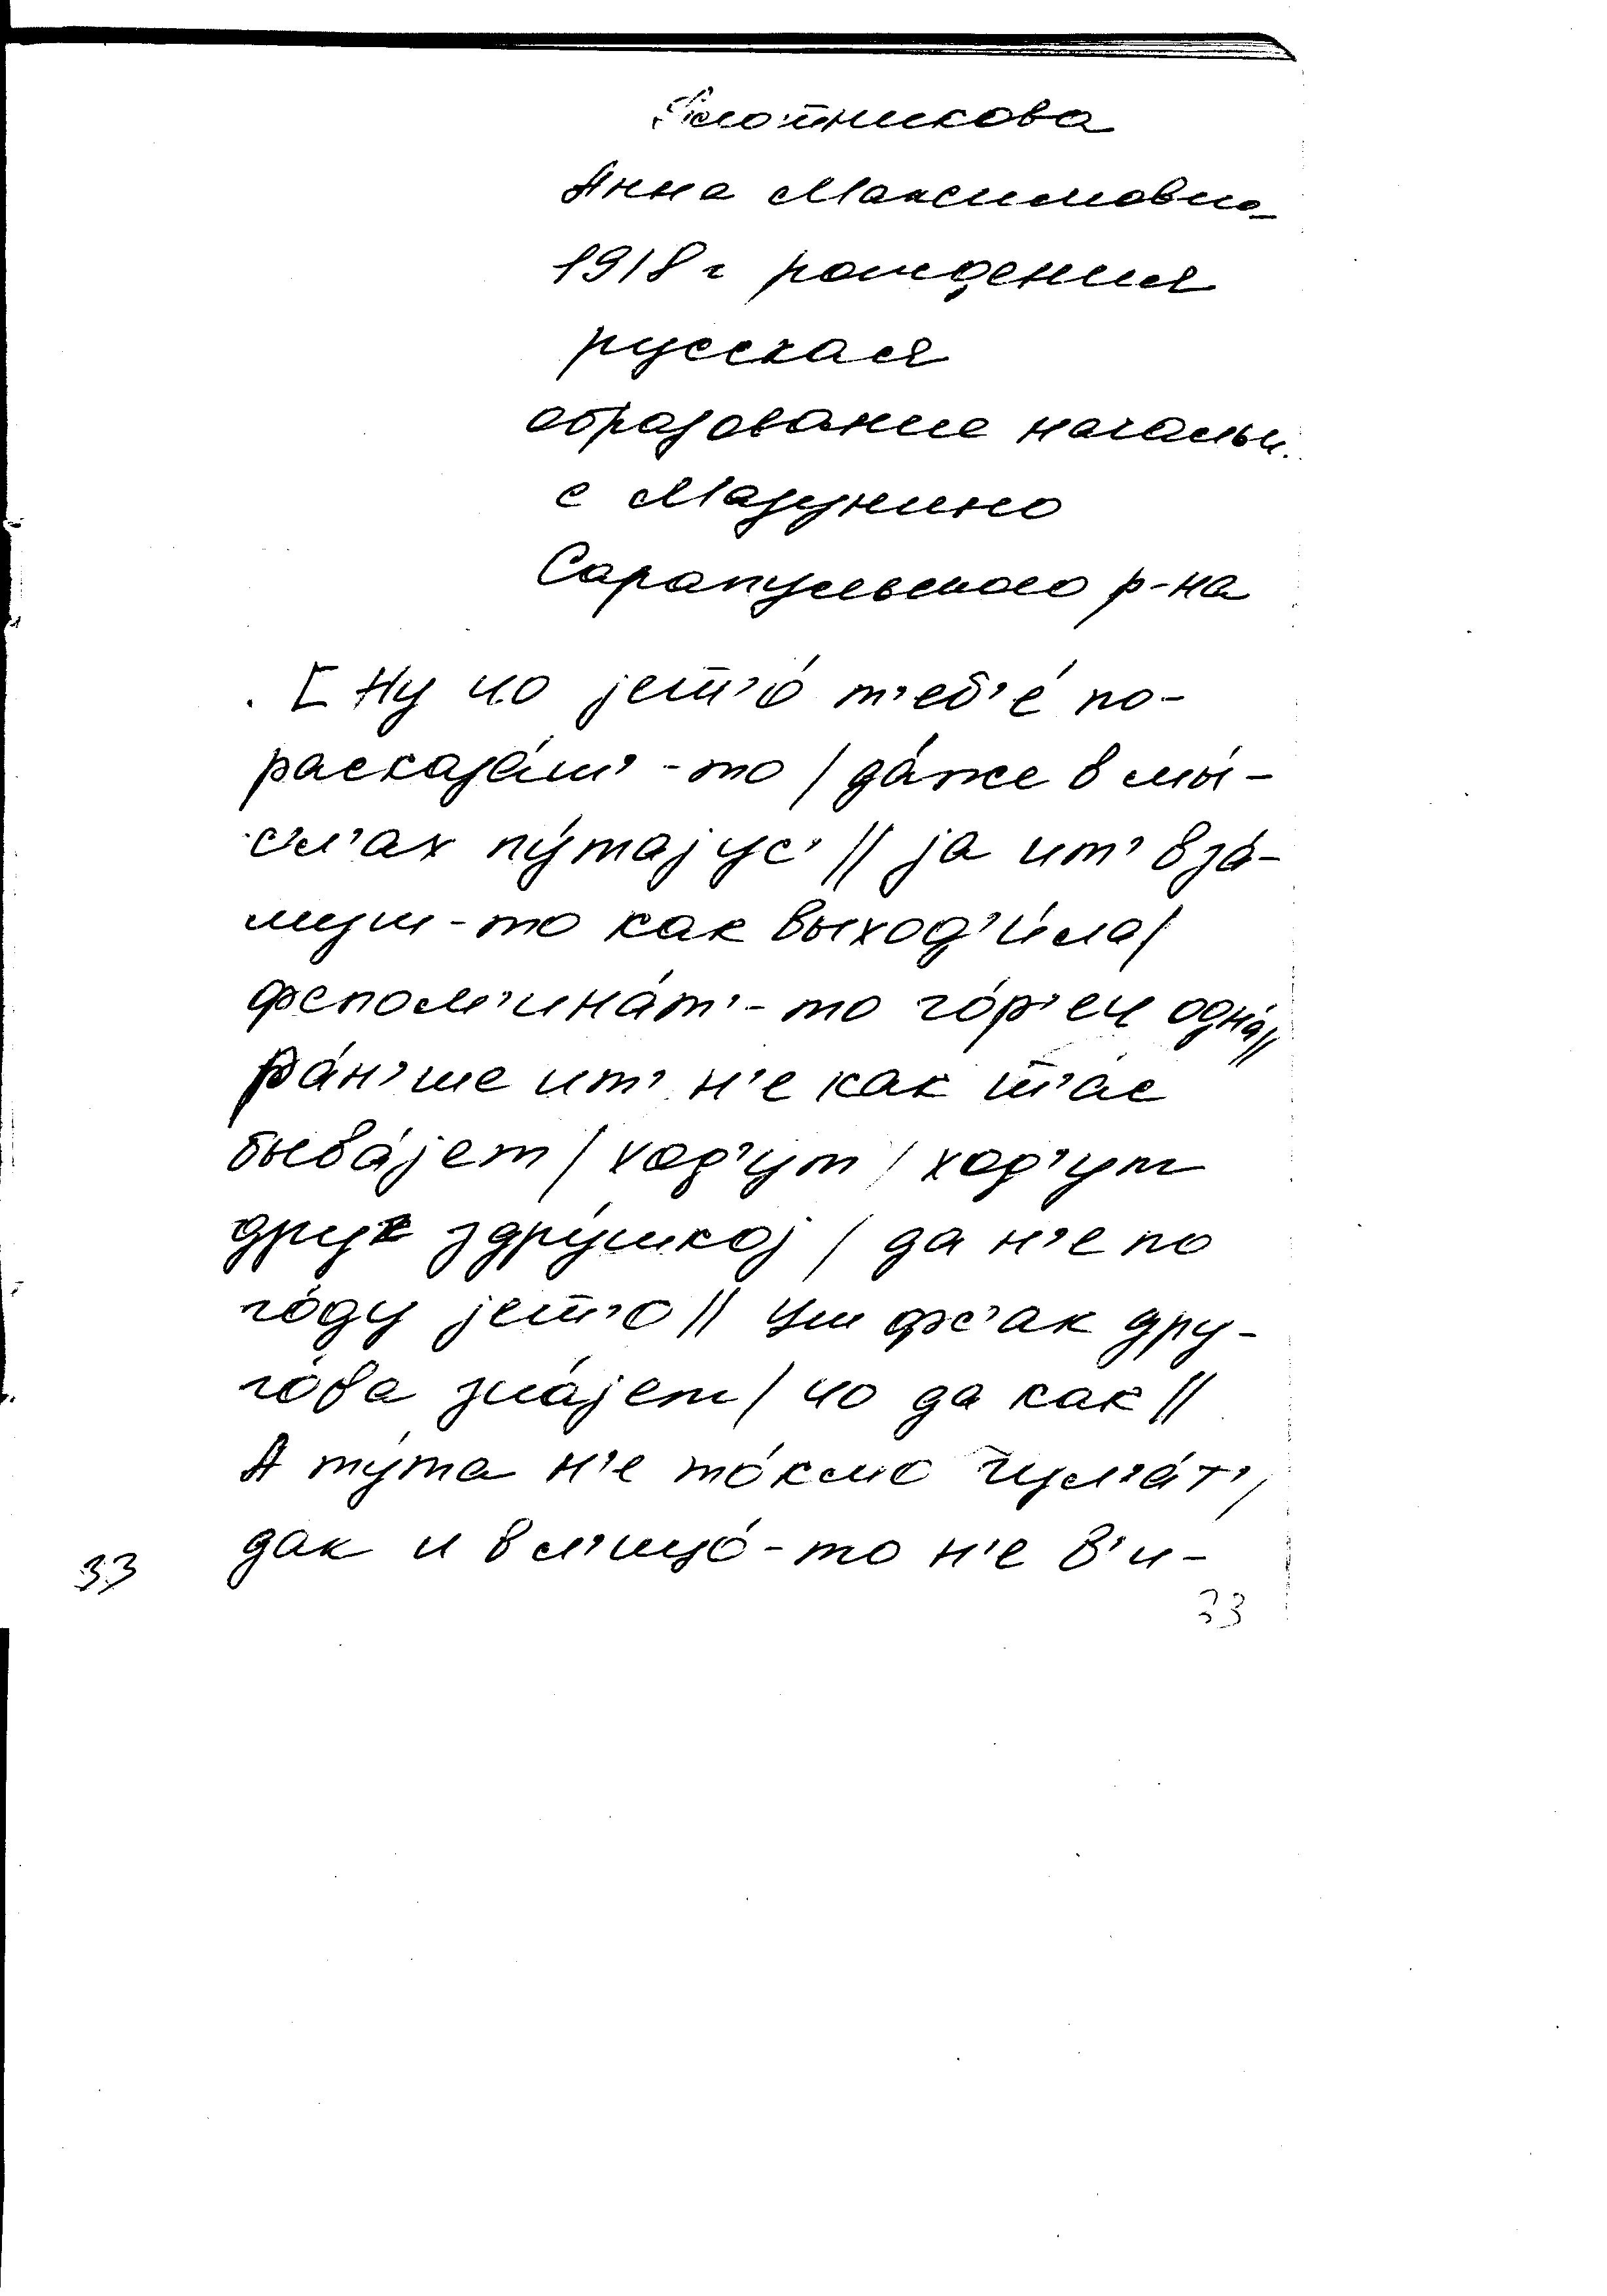 Плотникова
Анна Максимовна
1918 г рождения
русская
образование начальн.
с Мазунино
Сарапульского р-на
[Ну чо јешʼо́ тʼебʼе́ по-
расказа́тʼ-то / да́же в мы́-
сʼлʼах пу́тајусʼ // ја итʼ вза́-
муш-то как выходʼи́ла /
фспомʼина́тʼ-то го́рʼеч одна́ //
Ра́нʼше итʼ нʼе как тʼас
быва́јет / ходʼут / ходʼут
друк здру́шкој / да нʼе по
го́ду јешʼо // Уш фсʼак дру-
го́ва зна́јет / чо да как //
А ту́та нʼе то́кмо гулʼа́тʼ /
дак и влʼицо́-то нʼе вʼи-
33
33